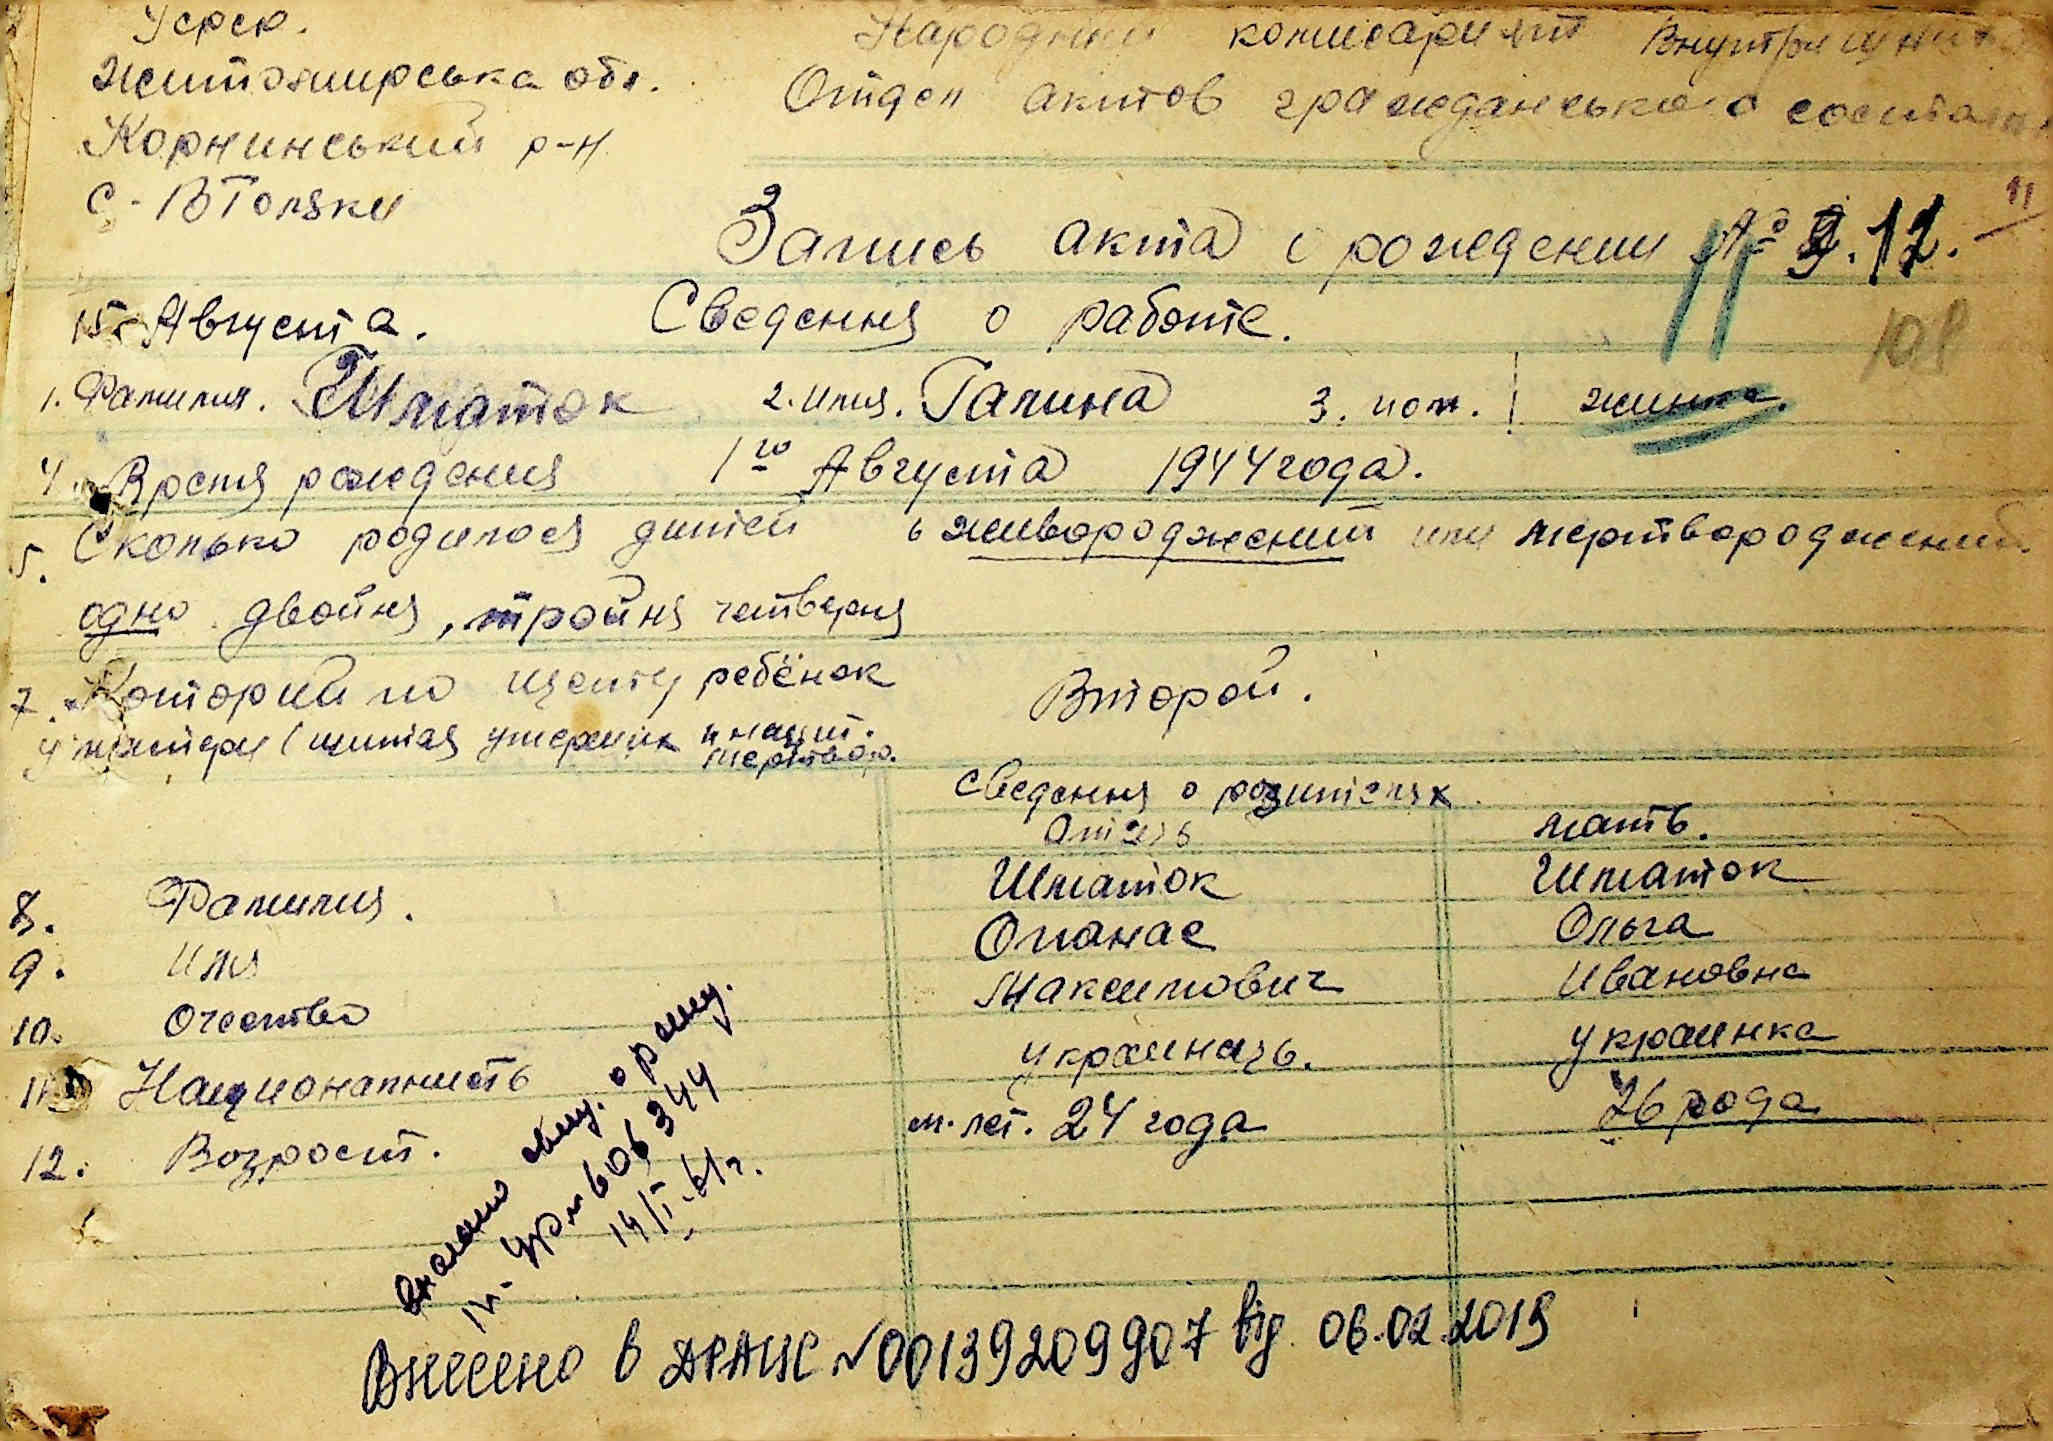 Усрср.
Житомирська обл.
Корнинський р-н
с. ВГоляки
Народний комисарият Внутришних
Отдел актов гражданського состоян
11
Запись акта о рождении № 12.
15 Августа. Сведения о работе.
108
1. Фамилия. Шматок 2. имя. Галина 3. пол. жинка.
4. Время рождения 1го Августа 1944 года.
5. Сколько родилося дитей живороджений или мертвороджений.
одно двойня, тройня четверня
7. Которий по щету ребёнок Второй.
у матери (щитая умерших и
мертвор.
Сведення о родителях.
Отець мать.
8. Фамилия. Шматок Шматок
9. Имя Опанас Ольга
10. Очество Максимович Ивановна
11. Национальнисть украинець. украинка
12. Возрост. 24 года 26 года
606344
14/I-61г.
Внесено в ДРАЦС №00139209907 від 06.02.2019